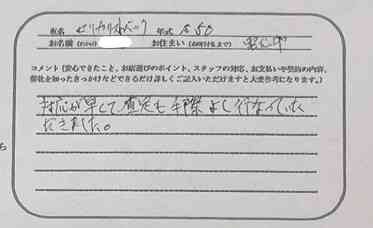 車名 セリカリフトバック 年式 S50
お名前 お住まい(お市町名まで)
コメント(安心できたこと、お店選びのポイント、スタッフの対応、お支払いや契約の内容、
弊社を知ったきっかけなどできるだけ詳しくご記入いただけますと大変参考になります。)
対応が早くて査定も手際よく行なっていた
だきました。